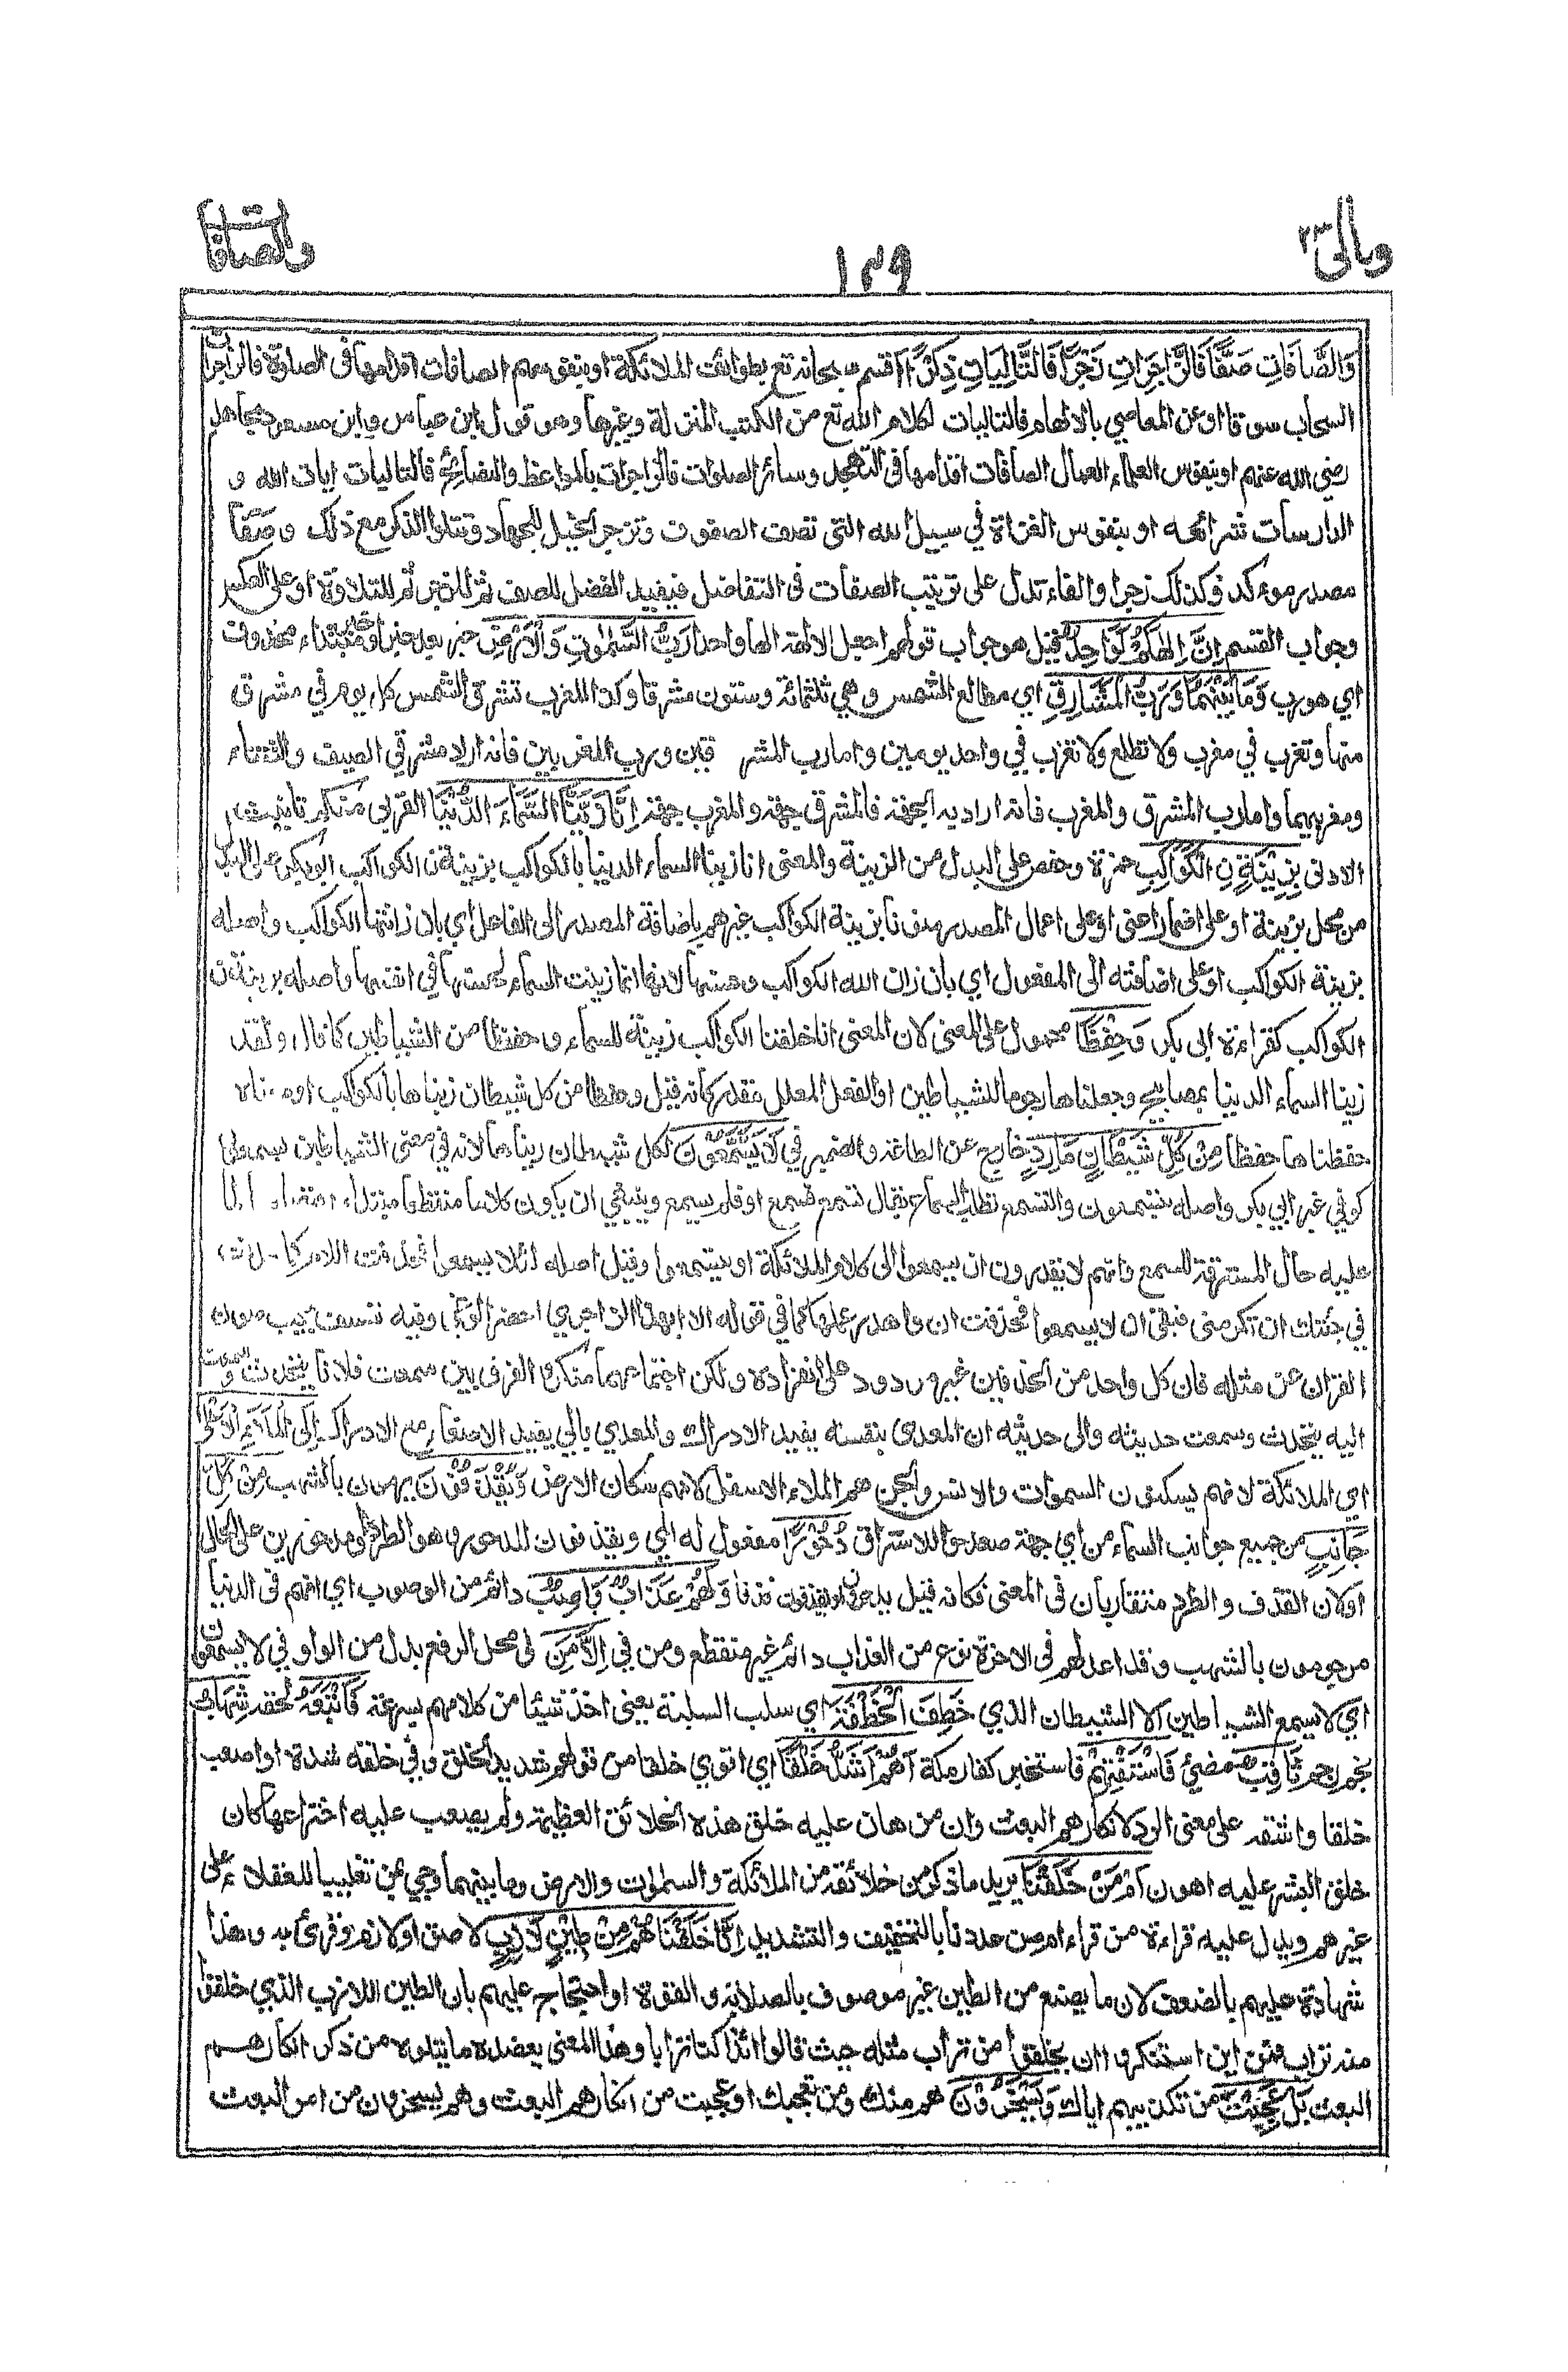 ومالي ٢٣
١٣٩
والصافات
وَالصَّافَّاتِ صَفًّا فَالزَّاجِرَاتِ زَجْرًا فَالتَّالِيَاتِ ذِكْرًا اقسم سبحانه تع بطوائف الملائكة او بنفوسهم الصافات اقدامها فى الصلوة فالزاجرات
السحاب سوقا او عن المعاصي بالالهام فالتاليات لكلام الله تع من الكتب المنزلة وغيرها وهو قول ابن عباس وابن مسعود ومجاهد
رضي الله عنهم او بنفوس العلماء العمال الصافات اقدامها فى التهجد وسائر الصلوات فالزاجرات بالمواعظ والنصائح فالتاليات ايات الله و
الدارسات شرائعه او بنفوس الغزاة في سبيل الله التى تصف الصفوف وتزجر الخيل للجهاد وتتلوا الذكر مع ذلك و صَفّاً
مصدر موءكد وكذلك زجرا والفاء تدل على ترتيب الصفات فى التفاضل فيفيد الفضل للصف ثم للزجر ثم للتلاوة او على العكس
وجواب القسم اِنَّ اِلٰهَكُمْ لَوَاحِدٌ قيل هو جواب قولهم اجعل الالهة الها واحدا رَبُّ السَّمٰوٰتِ وَالْاَرْضِ خبر بعد خبر او خبر مبتداء محذوف
اي هو رب وَمَا بَيْنَهُمَا وَرَبُّ الْمَشَارِقِ اي مطالع الشمس وهي ثلثمائة وستون مشرقا وكذا المغرب تشرق الشمس كل يوم في مشرق
منها وتغرب في مغرب ولا تطلع ولا تغرب في واحد يومين واما رب المشر قين ورب المغربين فانه اراد مشرقي الصيف والشتاء
ومغربيهما واما رب المشرق والمغرب فانه اراد به الجهة فالمشرق جهة والمغرب جهة اِنَّا زَيَّنَّا السَّمَاءَ الدُّنْيَا القربى منكم تانيث
الادنى بِزِيْنَةِ نِ الْكَوَاكِبِ حمزة وحفص على البدل من الزينة والمعنى انا زينا السماء الدنيا بالكواكب بزينة ن الكواكب ابوبكر على البدل
من محل بزينة او على اضمار اعنى او على اعمال المصدر منونا بزينة الكواكب غيرهم باضافة المصدر الى الفاعل اي بان زانتها الكواكب واصله
بزينة الكواكب او على اضافته الى المفعول اي بان زان الله الكواكب وحسنها لانها انما زينت السماء لحسنها في انفسها واصله بزينة ن
الكواكب كقراءة ابى بكر وَحِفْظًا محمول على المعنى لان المعنى انا خلقنا الكواكب زينة للسماء وحفظا من الشياطين كما قال ولقد
زينا السماء الدنيا بمصابيح وجعلناها رجوما للشياطين او الفعل المعلل مقدر كانه قيل وحفظا من كل شيطان زيناها بالكواكب او معناه
حفظناها حفظا مِنْ كُلِّ شَيْطَانٍ مَارِدٍ خارج عن الطاعة والضمير في لَا يَسَّمَّعُوْنَ لكل شيطان ريناها لانه في معنى الشياطين يسمعون
كوفي غير ابي بكر واصله يتسمعون والتسمع تطلب السماع يقال تسمع فسمع او فلم يسمع وينبغي ان يكون كلاما منقطعا مبتداء
عليه حال المسترقة للسمع وانهم لا يقدرون ان يسمعوا الى كلام الملائكة او يتسمعوا وقيل اصله لئلا يسمعوا فحذفت اللام كما
في جئتك ان تكرمنى فبقى ان لا يسمعوا فحذفت ان واهدر عملها كما في قوله الا ايهذا الزاجري احضر الوغى وفيه تعسف يجب صون
القران عن مثله فان كل واحد من الحذفين غير مردود على انفراده ولكن اجتماعهما منكر والفرق بين سمعت فلانا يتحدث وسمعت
اليه يتحدث وسمعت حديثه والى حديثه ان المعدى بنفسه يفيد الادراك والمعدي بالي يفيد الاصغاء مع الادراك اِلَى الْمَلَاِ الْاَعْلٰى
اي الملائكة لانهم يسكنون السموات والانس والجن هم الملاء الاسفل لانهم سكان الارض وَيُقْذَفُوْنَ يرمون بالشهب مِنْ كُلِّ
جَانِبٍ من جميع جوانب السماء من اي جهة صعدوا للاستراق دُحُوْرًا مفعول له اي ويقذفون للدحور وهو الطرد او مدحورين على الحال
او لان القذف والطرد متقاربان فى المعنى فكانه قيل يدحرون او يقذفون قذفا وَلَهُمْ عَذَابٌ وَاصِبٌ دائم من الوصوب اي انهم فى الدنيا
مرجومون بالشهب وقد اعد لهم فى الاخرة نوع من العذاب دائم غير منقطع ومن في اِلَّا مَنْ فى محل الرفع بدل من الواو في لا يسمعون
اي لا يسمع الشياطين الا الشيطان الذي خَطِفَ الْخَطْفَةَ اي سلب السلبة يعنى اخذ شيئا من كلامهم بسرعة فَاَتْبَعَهُ لحقه شِهَابٌ
نجم رجم ثَاقِبٌ مضيئ فَاسْتَفْتِهِمْ فاستخبر كفار مكة اَهُمْ اَشَدُّ خَلْقًا اي اقوي خلقا من قولهم شديد الخلق وفي خلقه شدة او اصعب
خلقا واشقه على معنى الرد لانكارهم البعث وان من هان عليه خلق هذه الخلائق العظيمة ولم يصعب عليه اختراعها كان
خلق البشر عليه اهون اَمْ مَنْ خَلَقْنَا يريد ما ذكر من خلائقه من الملائكة والسموات والارض وما بينهما وجي بمن تغليبا للعقلاء على
غيرهم ويدل عليه قراءة من قراء ام من عددنا بالتخفيف والتشديد اِنَّا خَلَقْنَاهُمْ مِنْ طِيْنٍ لَازِبٍ لاصق او لازم وقرئ به وهذا
شهادة عليهم بالضعف لان ما يصنع من الطين غير موصوف بالصلابة والقوة او احتجاج عليهم بان الطين اللازب الذي خلقوا
منه تراب فمن اين استنكروا ان يخلقوا من تراب مثله حيث قالوا ائذا كنا ترابا وهذا المعنى يعضده ما يتلوه من ذكر انكارهم
البعث بَلْ عَجِبْتَ من تكذيبهم اياك وَيَسْخَرُوْنَ هم منك ومن تعجبك او عجبت من انكارهم البعث وهم يسخرون من امر البعث